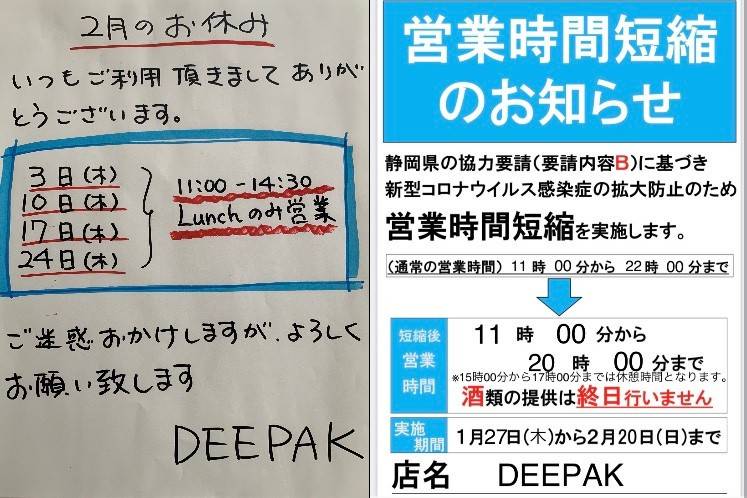 2月のお休み
いつもご利用頂きまして ありが
とうございます。
3日(木)
10日(木)
17日(木)
24日(木)
11:00-14:30
Lunchのみ営業
ご迷惑おかけしますが、よろしく
お願い致します
DEEPAK
営業時間短縮
のお知らせ
静岡県の協力要請(要請内容B)に基づき
新型コロナウイルス感染症の拡大防止のため
営業時間短縮を実施します。
(通常の営業時間) 11時 00分から 22時 00分まで
短縮後
営業
時間
11 時 00 分から
20 時 00 分まで
※15時00分から17時00分までは休憩時間となります。
酒類の提供は終日行いません
実施
期間
1月27日(木)から2月20日(日)まで
店名 DEEPAK